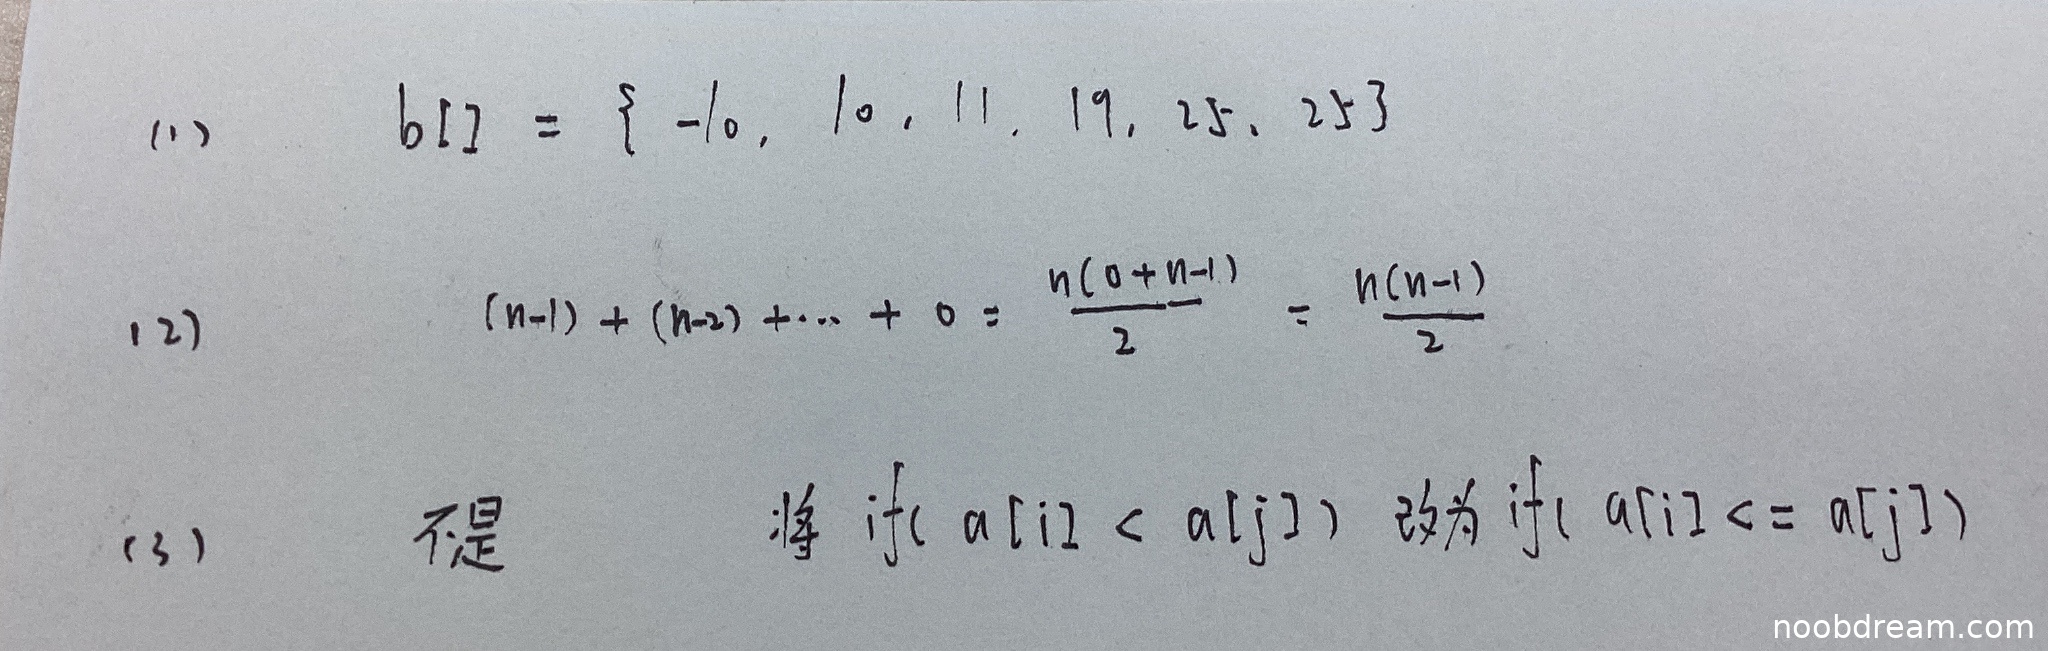 (1) b[] = { -10, 10, 11, 19, 25, 25}
(2) (n-1) + (n-2) + ... + 0 = n(0+n-1)/2 = n(n-1)/2
(3) 不是 将 if( a[i] < a[j]) 改为 if( a[i] <= a[j])
noobdream.com